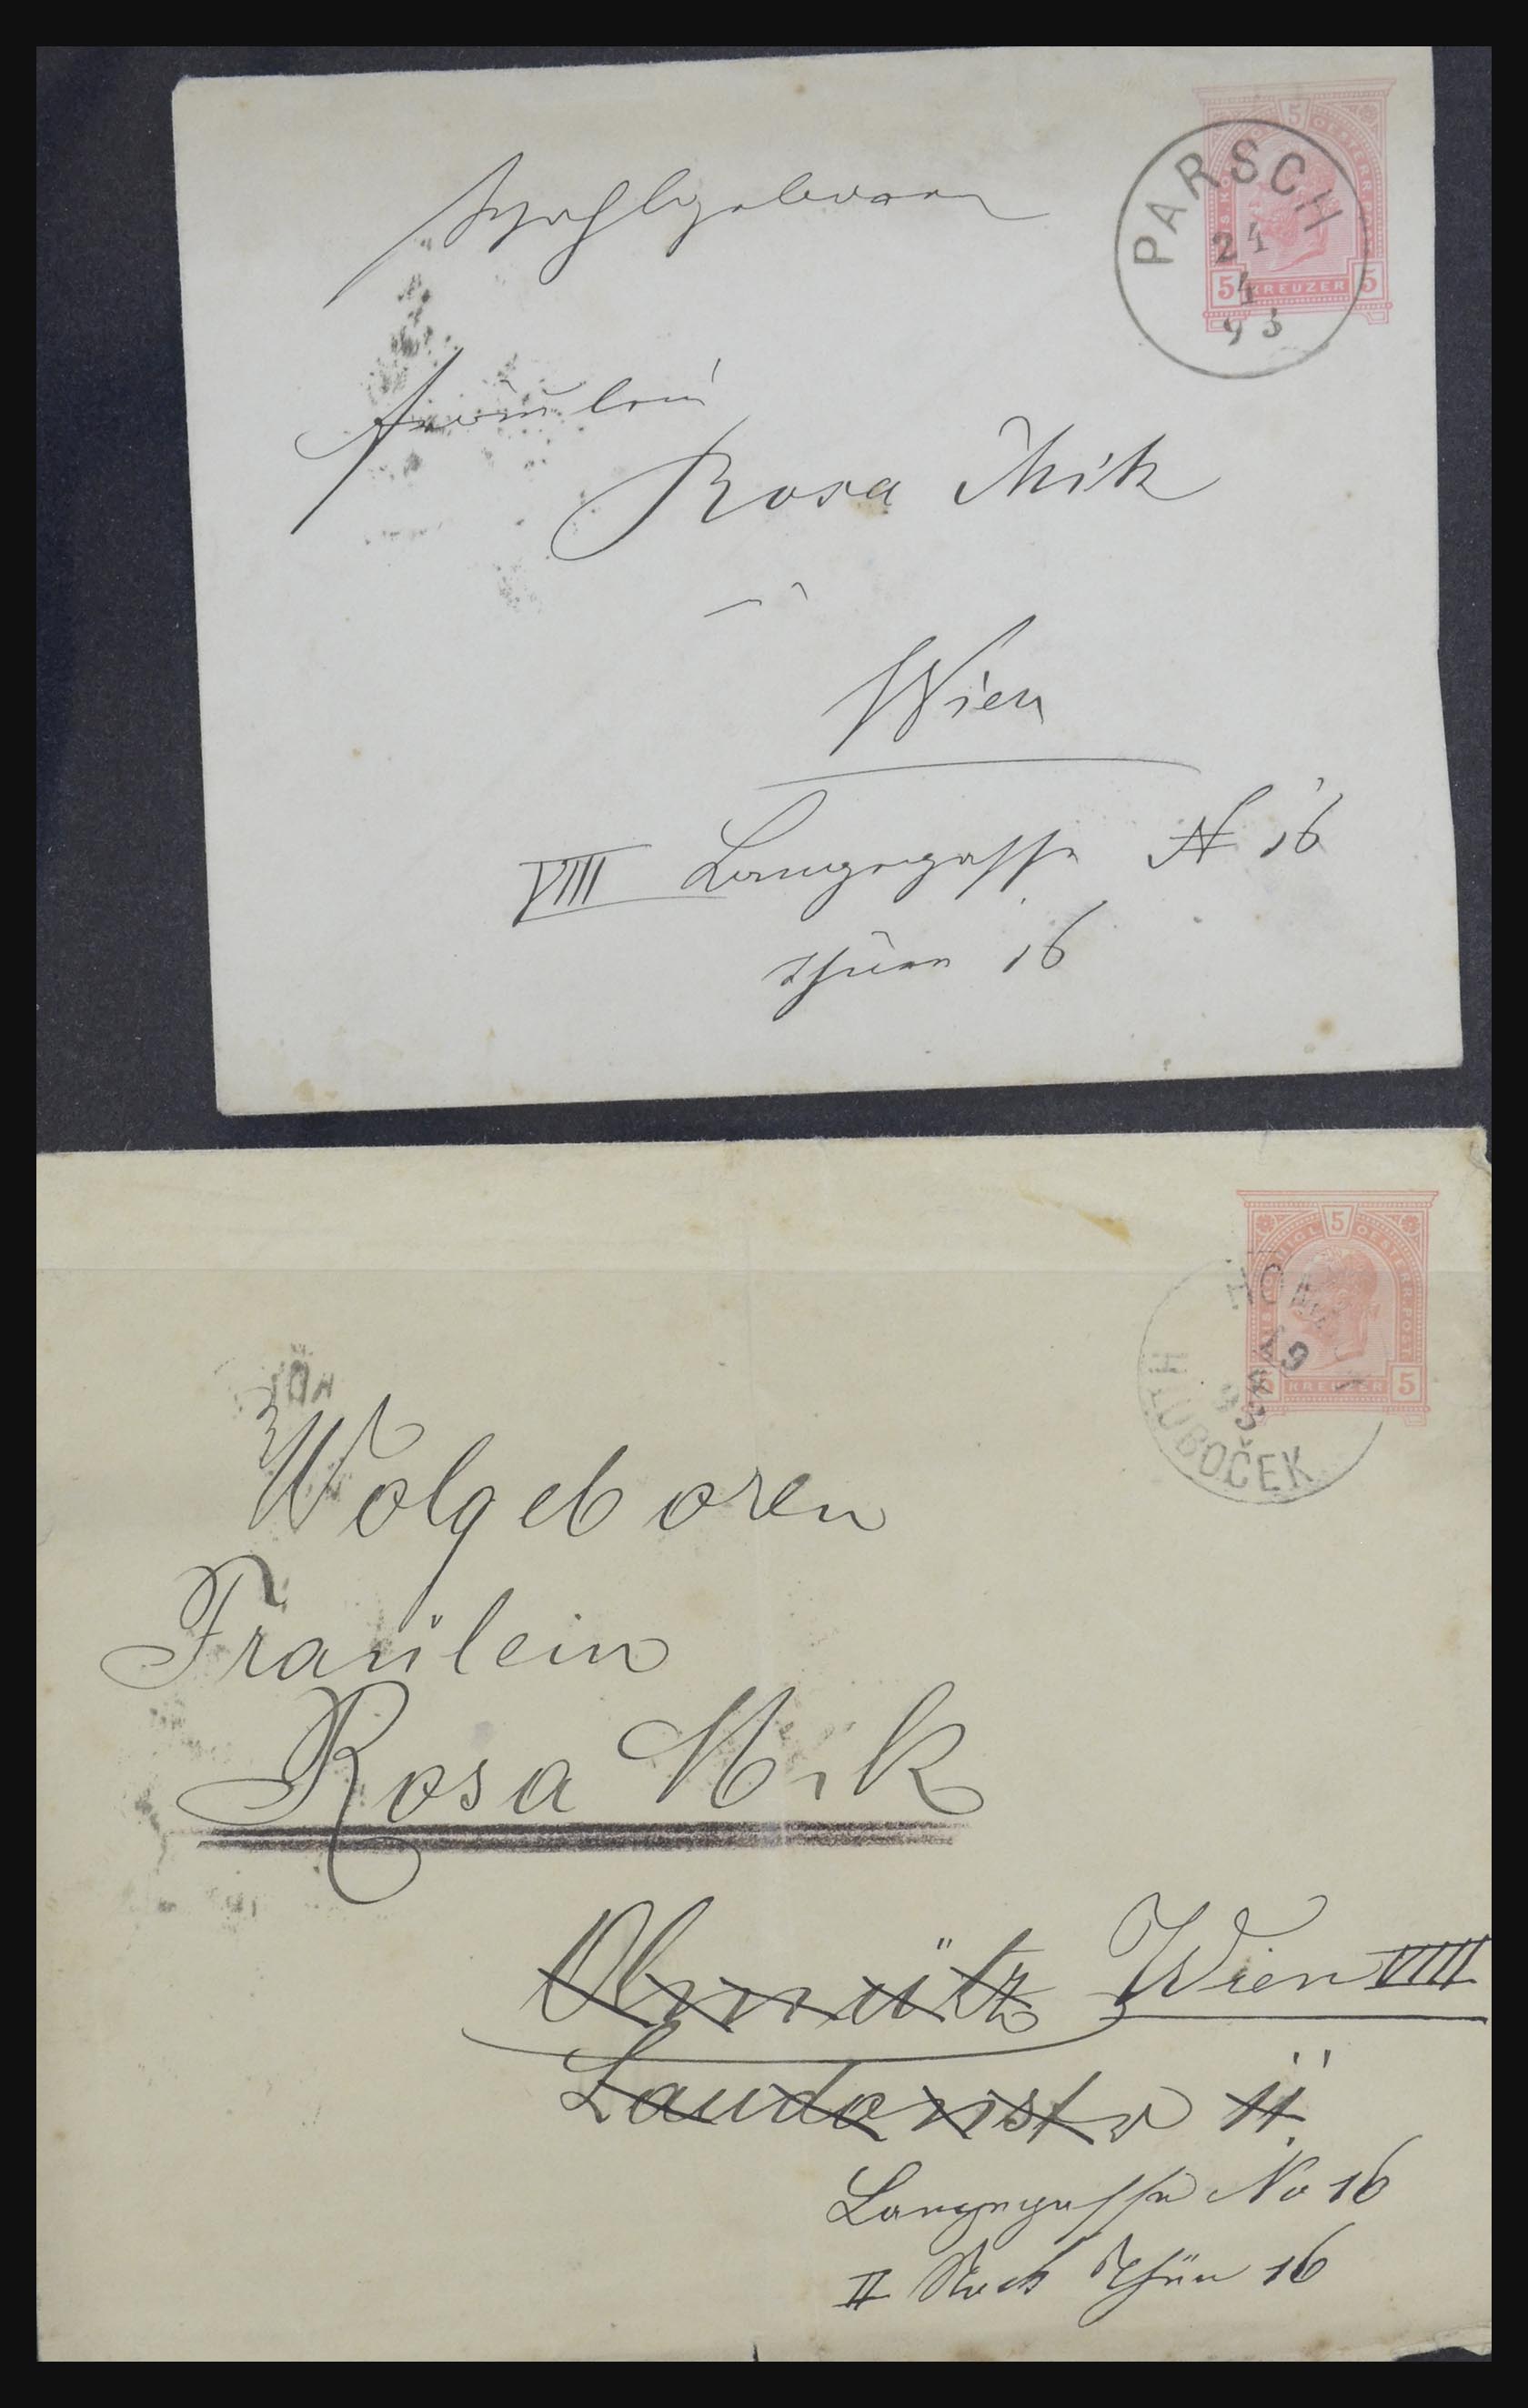 5
OESTERR. P
5 KREUZER 5
PARSCH
24
4
93
Wohlgeboren
Fräulein
Rosa Mik
Wien
VIII Langegasse N 16
Thüre 16
5
KAIS KÖNIGL OESTERR. POST
5 KREUZER 5
HLUBOČEK
9
93
Wolgeboren
Fraülein
Rosa Mik
Olmütz Wien VIII
Laudonstr 11
Langegasse No 16
II Stock Thür 16